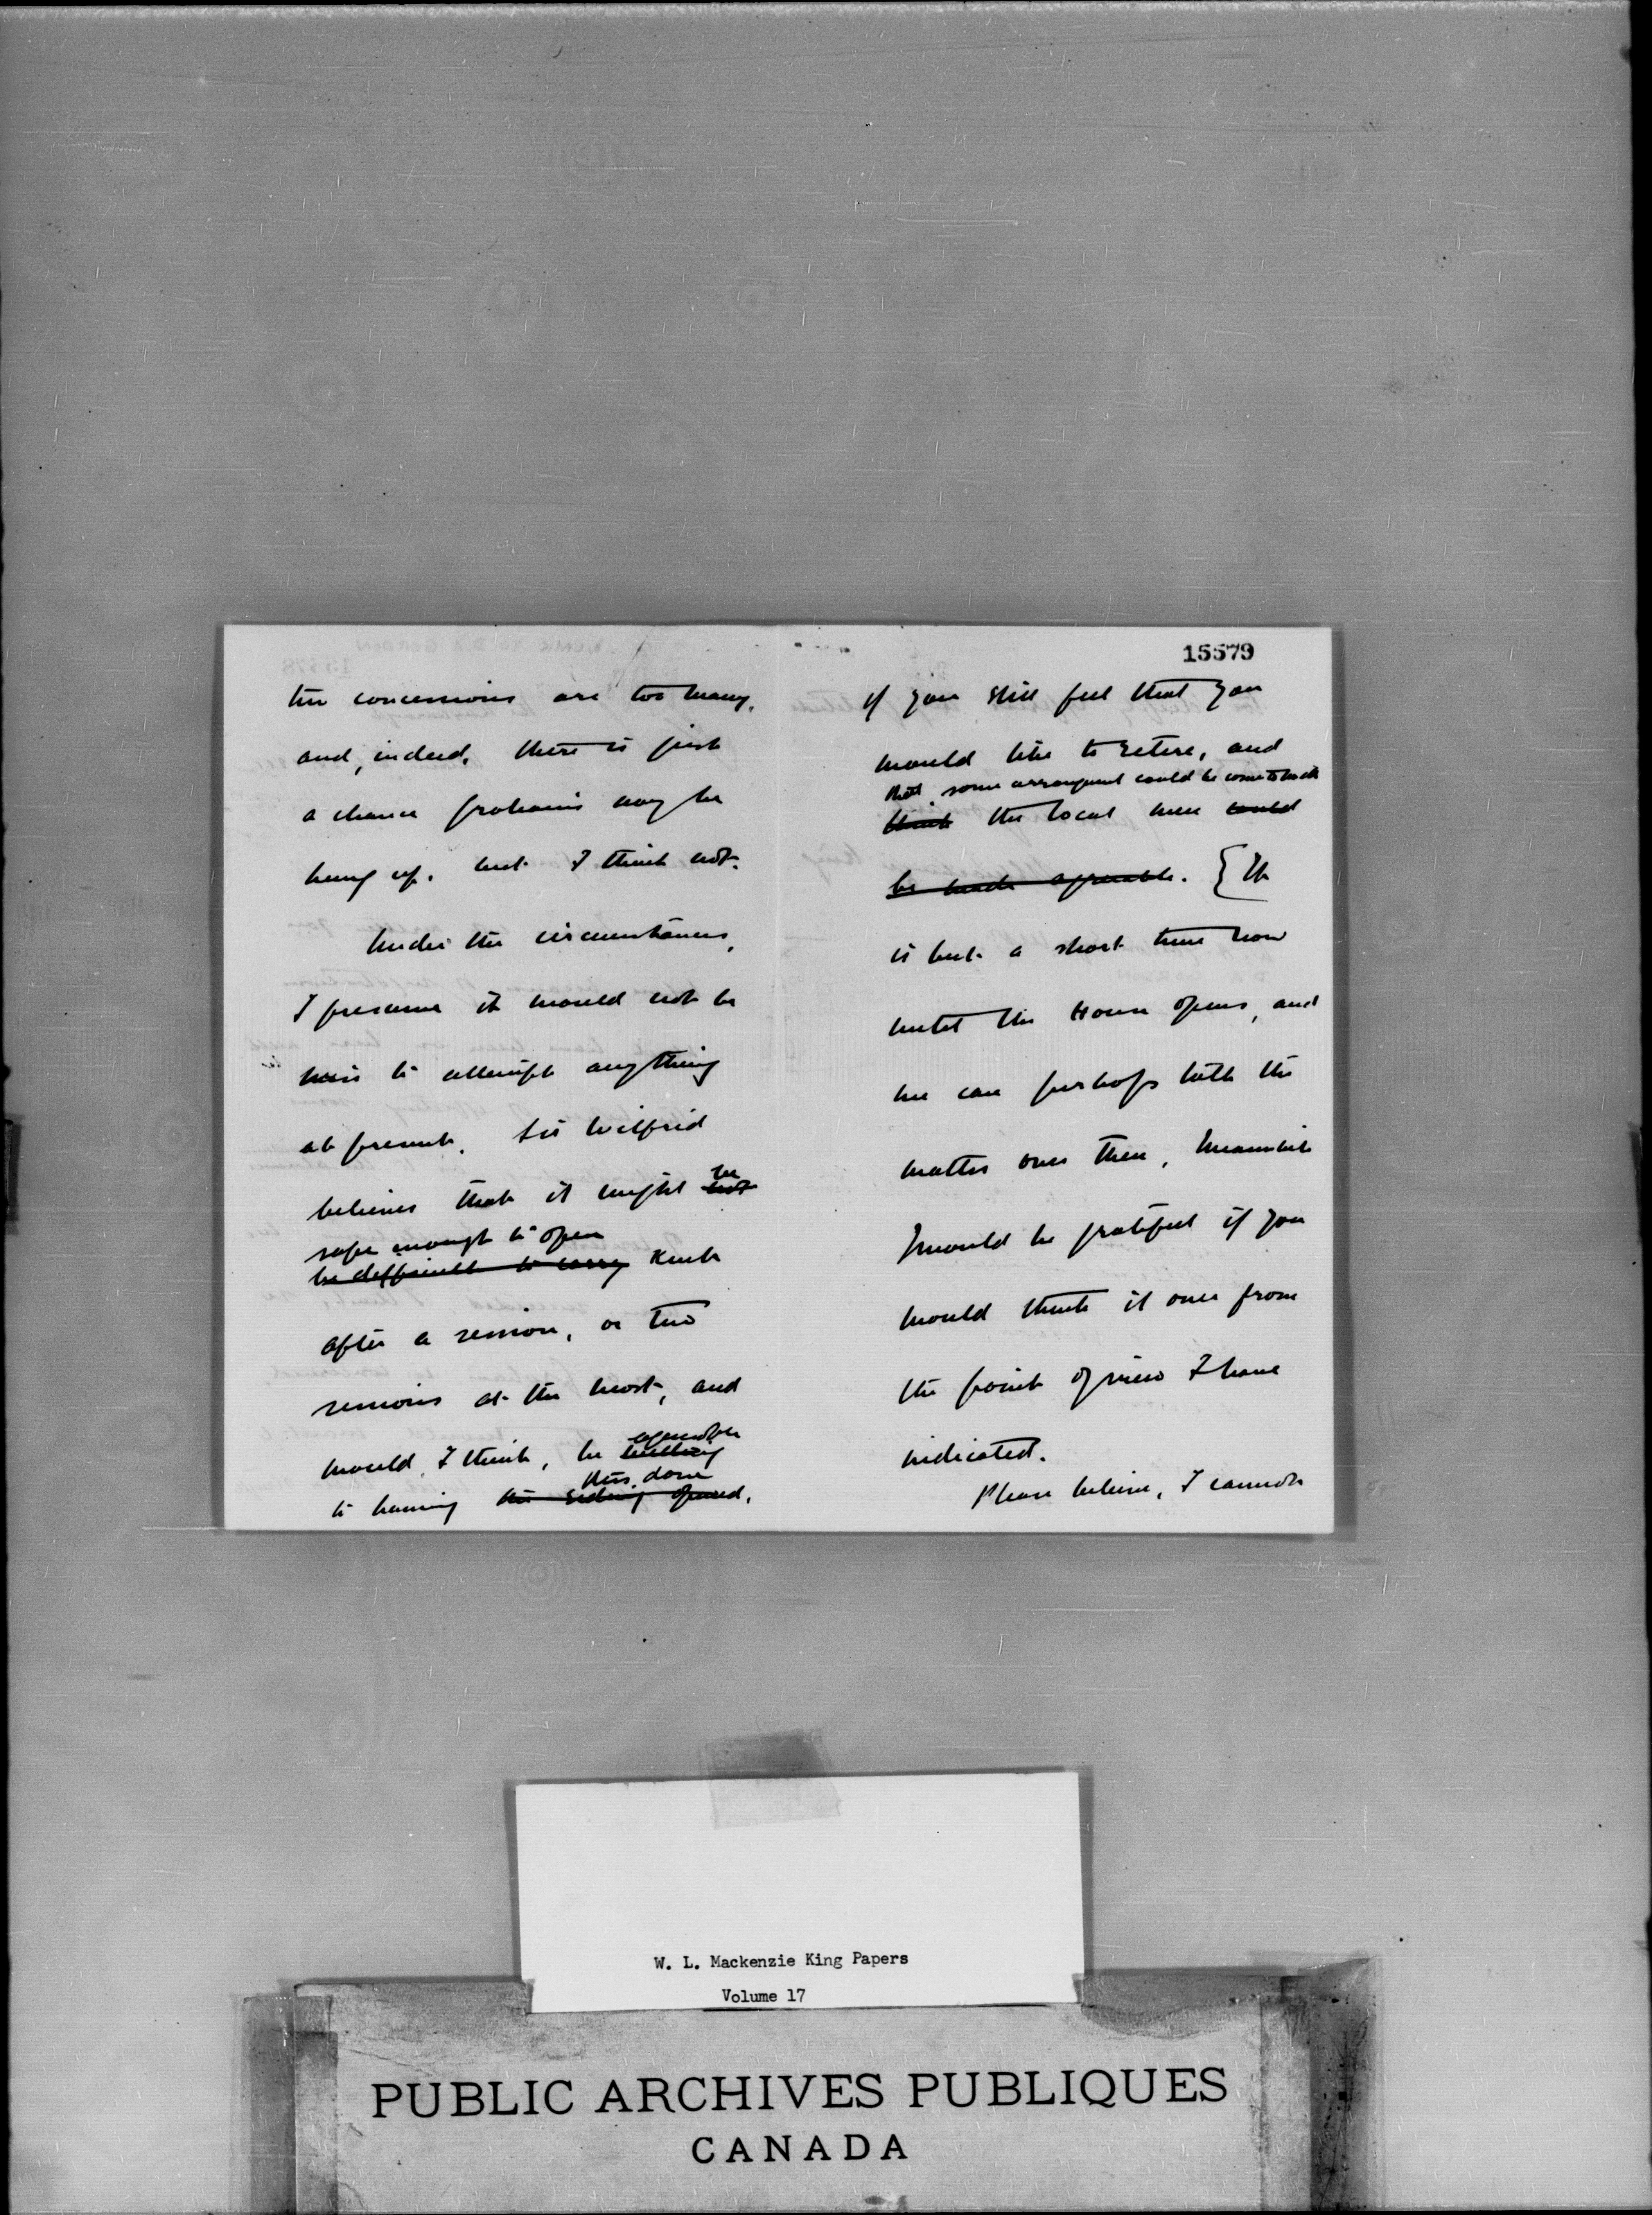 the concessions are too many,
and, indeed, there is just
a chance probamis may be
hung up, but I think not.
Under the circumstances,
I presume it would not be
wise to attempt anything
at present. Sir Wilfrid
believes that it might be not
safe enough to open
be difficult to carry Kent
after a session, or two
sessions at the most, and
would, I think, be agreeable willing
this done
to having the siding opened.
15579
if you still feel that you
would like to retire, and
that some arrangement could be come to with
think the local men could
be made agreeable. { It
is but a short time now
until the House opens, and
we can perhaps talk the
matter over then. Meanwhile
I would be grateful if you
would think it over from
the point of view I have
indicated.
Please believe, I cannot
W. L. Mackenzie King Papers
Volume 17
PUBLIC ARCHIVES PUBLIQUES
CANADA